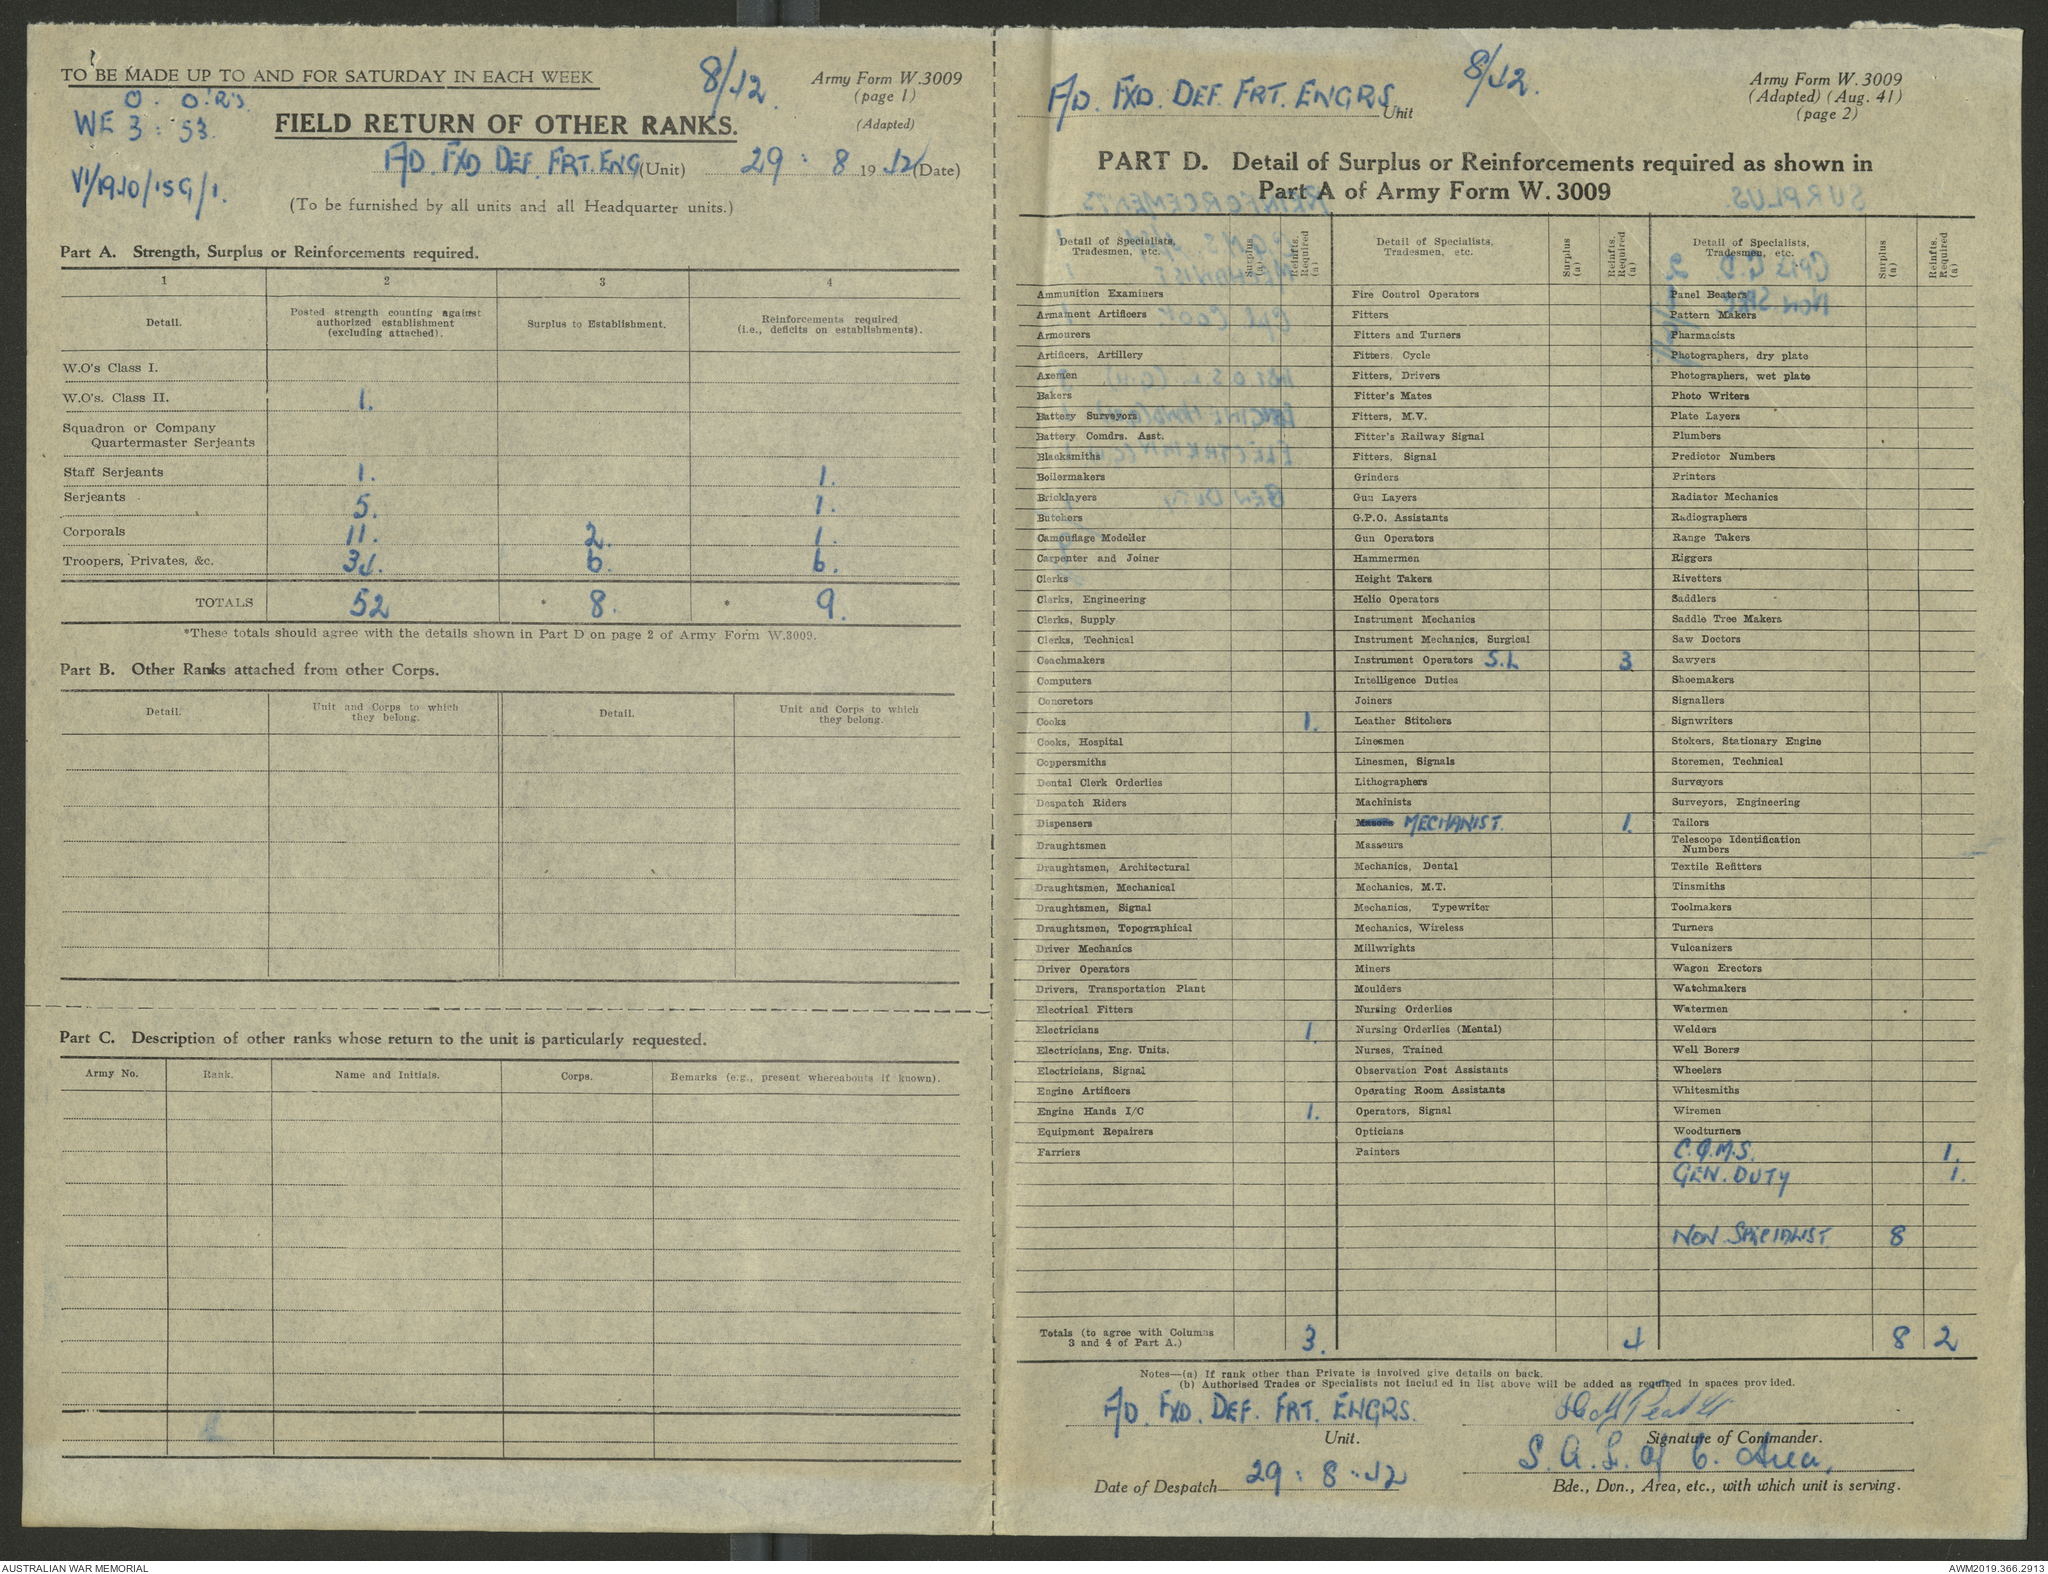 TO BE MADE UP TO AND FOR SATURDAY IN EACH WEEK
8/42.
Army Form W.3009
(page 1)
(Adapted)
O. O.R's.
WE 3 : 53.
FIELD RETURN OF OTHER RANKS.
A/D. FXD DEF. FRT. ENG (Unit) 29 : 8 1942 (Date)
VI/1940/15G/1.
(To be furnished by all units and all Headquarter units.)
Part A. Strength, Surplus or Reinforcements required.
1 2 3 4
Detail.
Posted strength counting against authorized establishment (excluding attached).
Surplus to Establishment.
Reinforcements required (i.e., deficits on establishments).
W.O's Class I.
W.O's. Class II. 1.
Squadron or Company
Quartermaster Serjeants
Staff Serjeants 1. 1.
Serjeants 5. 1.
Corporals 11. 2. 1.
Troopers, Privates, &c. 34. 6. 6.
TOTALS 52 * 8. * 9.
*These totals should agree with the details shown in Part D on page 2 of Army Form W.3009.
Part B. Other Ranks attached from other Corps.
Detail.
Unit and Corps to which they belong.
Detail.
Unit and Corps to which they belong.
Part C. Description of other ranks whose return to the unit is particularly requested.
Army No. Rank. Name and Initials. Corps. Remarks (e.g., present whereabouts if known).
A/D. FXD. DEF. FRT. ENGRS Unit
8/42.
Army Form W. 3009
(Adapted) (Aug. 41)
(page 2)
PART D. Detail of Surplus or Reinforcements required as shown in
Part A of Army Form W. 3009
SURPLUS
REINFORCEMENTS
Detail of Specialists, Tradesmen, etc.
Surplus (a)
Reinfts. Required (a)
Ammunition Examiners
Armament Artificers
Armourers
Artificers, Artillery
Axemen
Bakers
Battery Surveyors
Battery Comdrs. Asst.
Blacksmiths
Boilermakers
Bricklayers
Butchers
Camouflage Modeller
Carpenter and Joiner
Clerks
Clerks, Engineering
Clerks, Supply
Clerks, Technical
Coachmakers
Computers
Concretors
Cooks 1.
Cooks, Hospital
Coppersmiths
Dental Clerk Orderlies
Despatch Riders
Dispensers
Draughtsmen
Draughtsmen, Architectural
Draughtsmen, Mechanical
Draughtsmen, Signal
Draughtsmen, Topographical
Driver Mechanics
Driver Operators
Drivers, Transportation Plant
Electrical Fitters
Electricians 1.
Electricians, Eng. Units.
Electricians, Signal
Engine Artificers
Engine Hands I/C 1.
Equipment Repairers
Farriers
Detail of Specialists, Tradesmen, etc.
Surplus (a)
Reinfts. Required (a)
Fire Control Operators
Fitters
Fitters and Turners
Fitters, Cycle
Fitters, Drivers
Fitter's Mates
Fitters, M.V.
Fitter's Railway Signal
Fitters, Signal
Grinders
Gun Layers
G.P.O. Assistants
Gun Operators
Hammermen
Height Takers
Helio Operators
Instrument Mechanics
Instrument Mechanics, Surgical
Instrument Operators S.L 3
Intelligence Duties
Joiners
Leather Stitchers
Linesmen
Linesmen, Signals
Lithographers
Machinists
Masons MECHANIST. 1.
Masseurs
Mechanics, Dental
Mechanics, M.T.
Mechanics, Typewriter
Mechanics, Wireless
Millwrights
Miners
Moulders
Nursing Orderlies
Nursing Orderlies (Mental)
Nurses, Trained
Observation Post Assistants
Operating Room Assistants
Operators, Signal
Opticians
Painters
Detail of Specialists, Tradesmen, etc.
Surplus (a)
Reinfts. Required (a)
Panel Beaters
Pattern Makers
Pharmacists
Photographers, dry plate
Photographers, wet plate
Photo Writers
Plate Layers
Plumbers
Predictor Numbers
Printers
Radiator Mechanics
Radiographers
Range Takers
Riggers
Rivetters
Saddlers
Saddle Tree Makers
Saw Doctors
Sawyers
Shoemakers
Signallers
Signwriters
Stokers, Stationary Engine
Storemen, Technical
Surveyors
Surveyors, Engineering
Tailors
Telescope Identification
Numbers
Textile Refitters
Tinsmiths
Toolmakers
Turners
Vulcanizers
Wagon Erectors
Watchmakers
Watermen
Welders
Well Borers
Wheelers
Whitesmiths
Wiremen
Woodturners
C.Q.M.S. 1.
GEN. DUTY 1.
NON SPECIALIST 8
Totals (to agree with Columns
3 and 4 of Part A.) 3. 4 8 2
Notes—(a) If rank other than Private is involved give details on back.
(b) Authorised Trades or Specialists not included in list above will be added as required in spaces provided.
A/D. FXD. DEF. FRT. ENGRS.
Unit.
Signature of Commander.
S. A. L. of C. Area,
Date of Despatch 29 : 8 : 42
Bde., Dvn., Area, etc., with which unit is serving.
AUSTRALIAN WAR MEMORIAL
AWM2019.366.2913